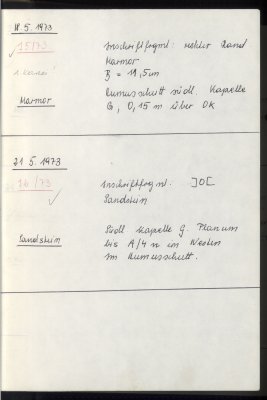 18.5.1973
15/73
Inschriftfrgmt: rechter Rand
Marmor
B = 11,5 cm
Marmor
Humusschutt südl. Kapelle
G, 0,15 m über OK
21.5.1973
16/73
Inschriftfrgmt: ]O[
Sandstein
Sandstein
Südl Kapelle G. Planum
bis A/4 n im Westen
im Humusschutt.